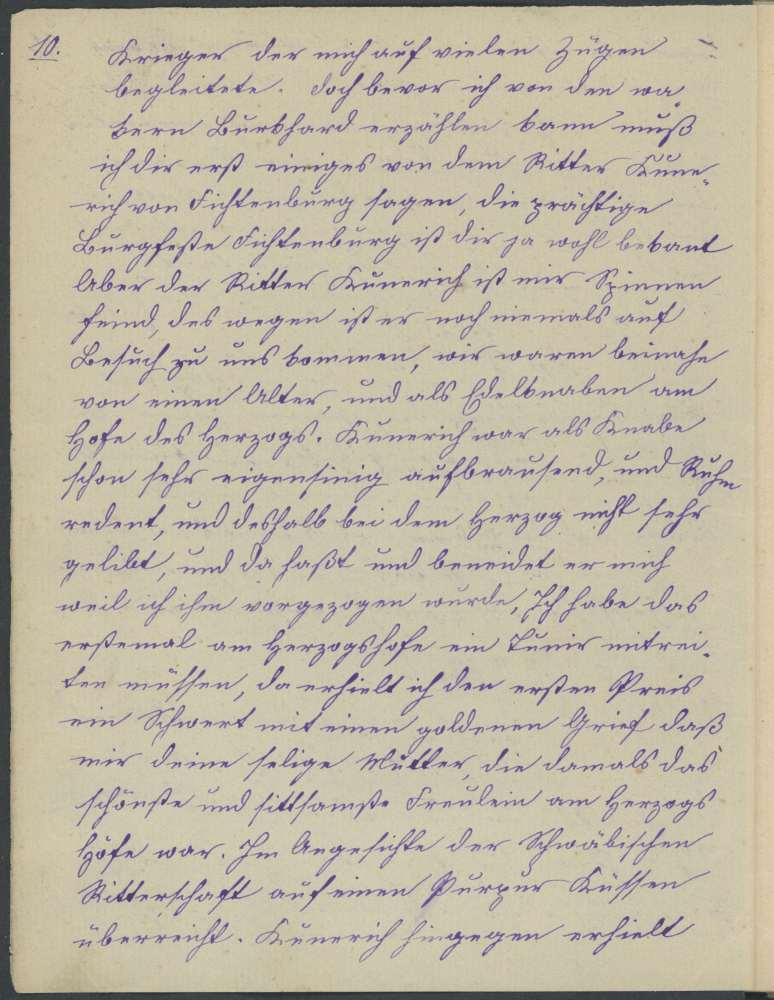 10.
Krieger der mich auf vielen Zügen
begleitete. Doch bevor ich von den wa
kern Burkhard erzählen kann muß
ich dir erst einiges von dem Ritter Kune-
rich von Fichtenburg sagen, die prächtige
Burgfeste Fichtenburg ist dir ja wohl bekant
Aber der Ritter Kunerich ist mir Spinnen
feind, des wegen ist er noch niemals auf
Besuch zu uns kommen, wir waren beinahe
von einen Alter, und als Edelknaben am
Hofe des Herzogs. Kunerich war als Knabe
schon sehr eigensinig aufbrausend, und Ruhm
redent, und deshalb bei dem Herzog nicht sehr
gelibt, und da haßt und beneidet er mich
weil ich ihm vorgezogen wurde, Ich habe das
erstemal am Herzogshofe ein Tunir mitrei-
ten müssen, da erhielt ich den ersten Preis
ein Schwert mit einen goldenen Grief daß
mir deine selige Mutter, die damals das
schönste und sittsamste Freulein am Herzogs
Hofe war. Im Angesichte der Schwäbischen
Ritterschaft auf einen Purpur Küssen
überreicht. Kunerich hingegen erhielt